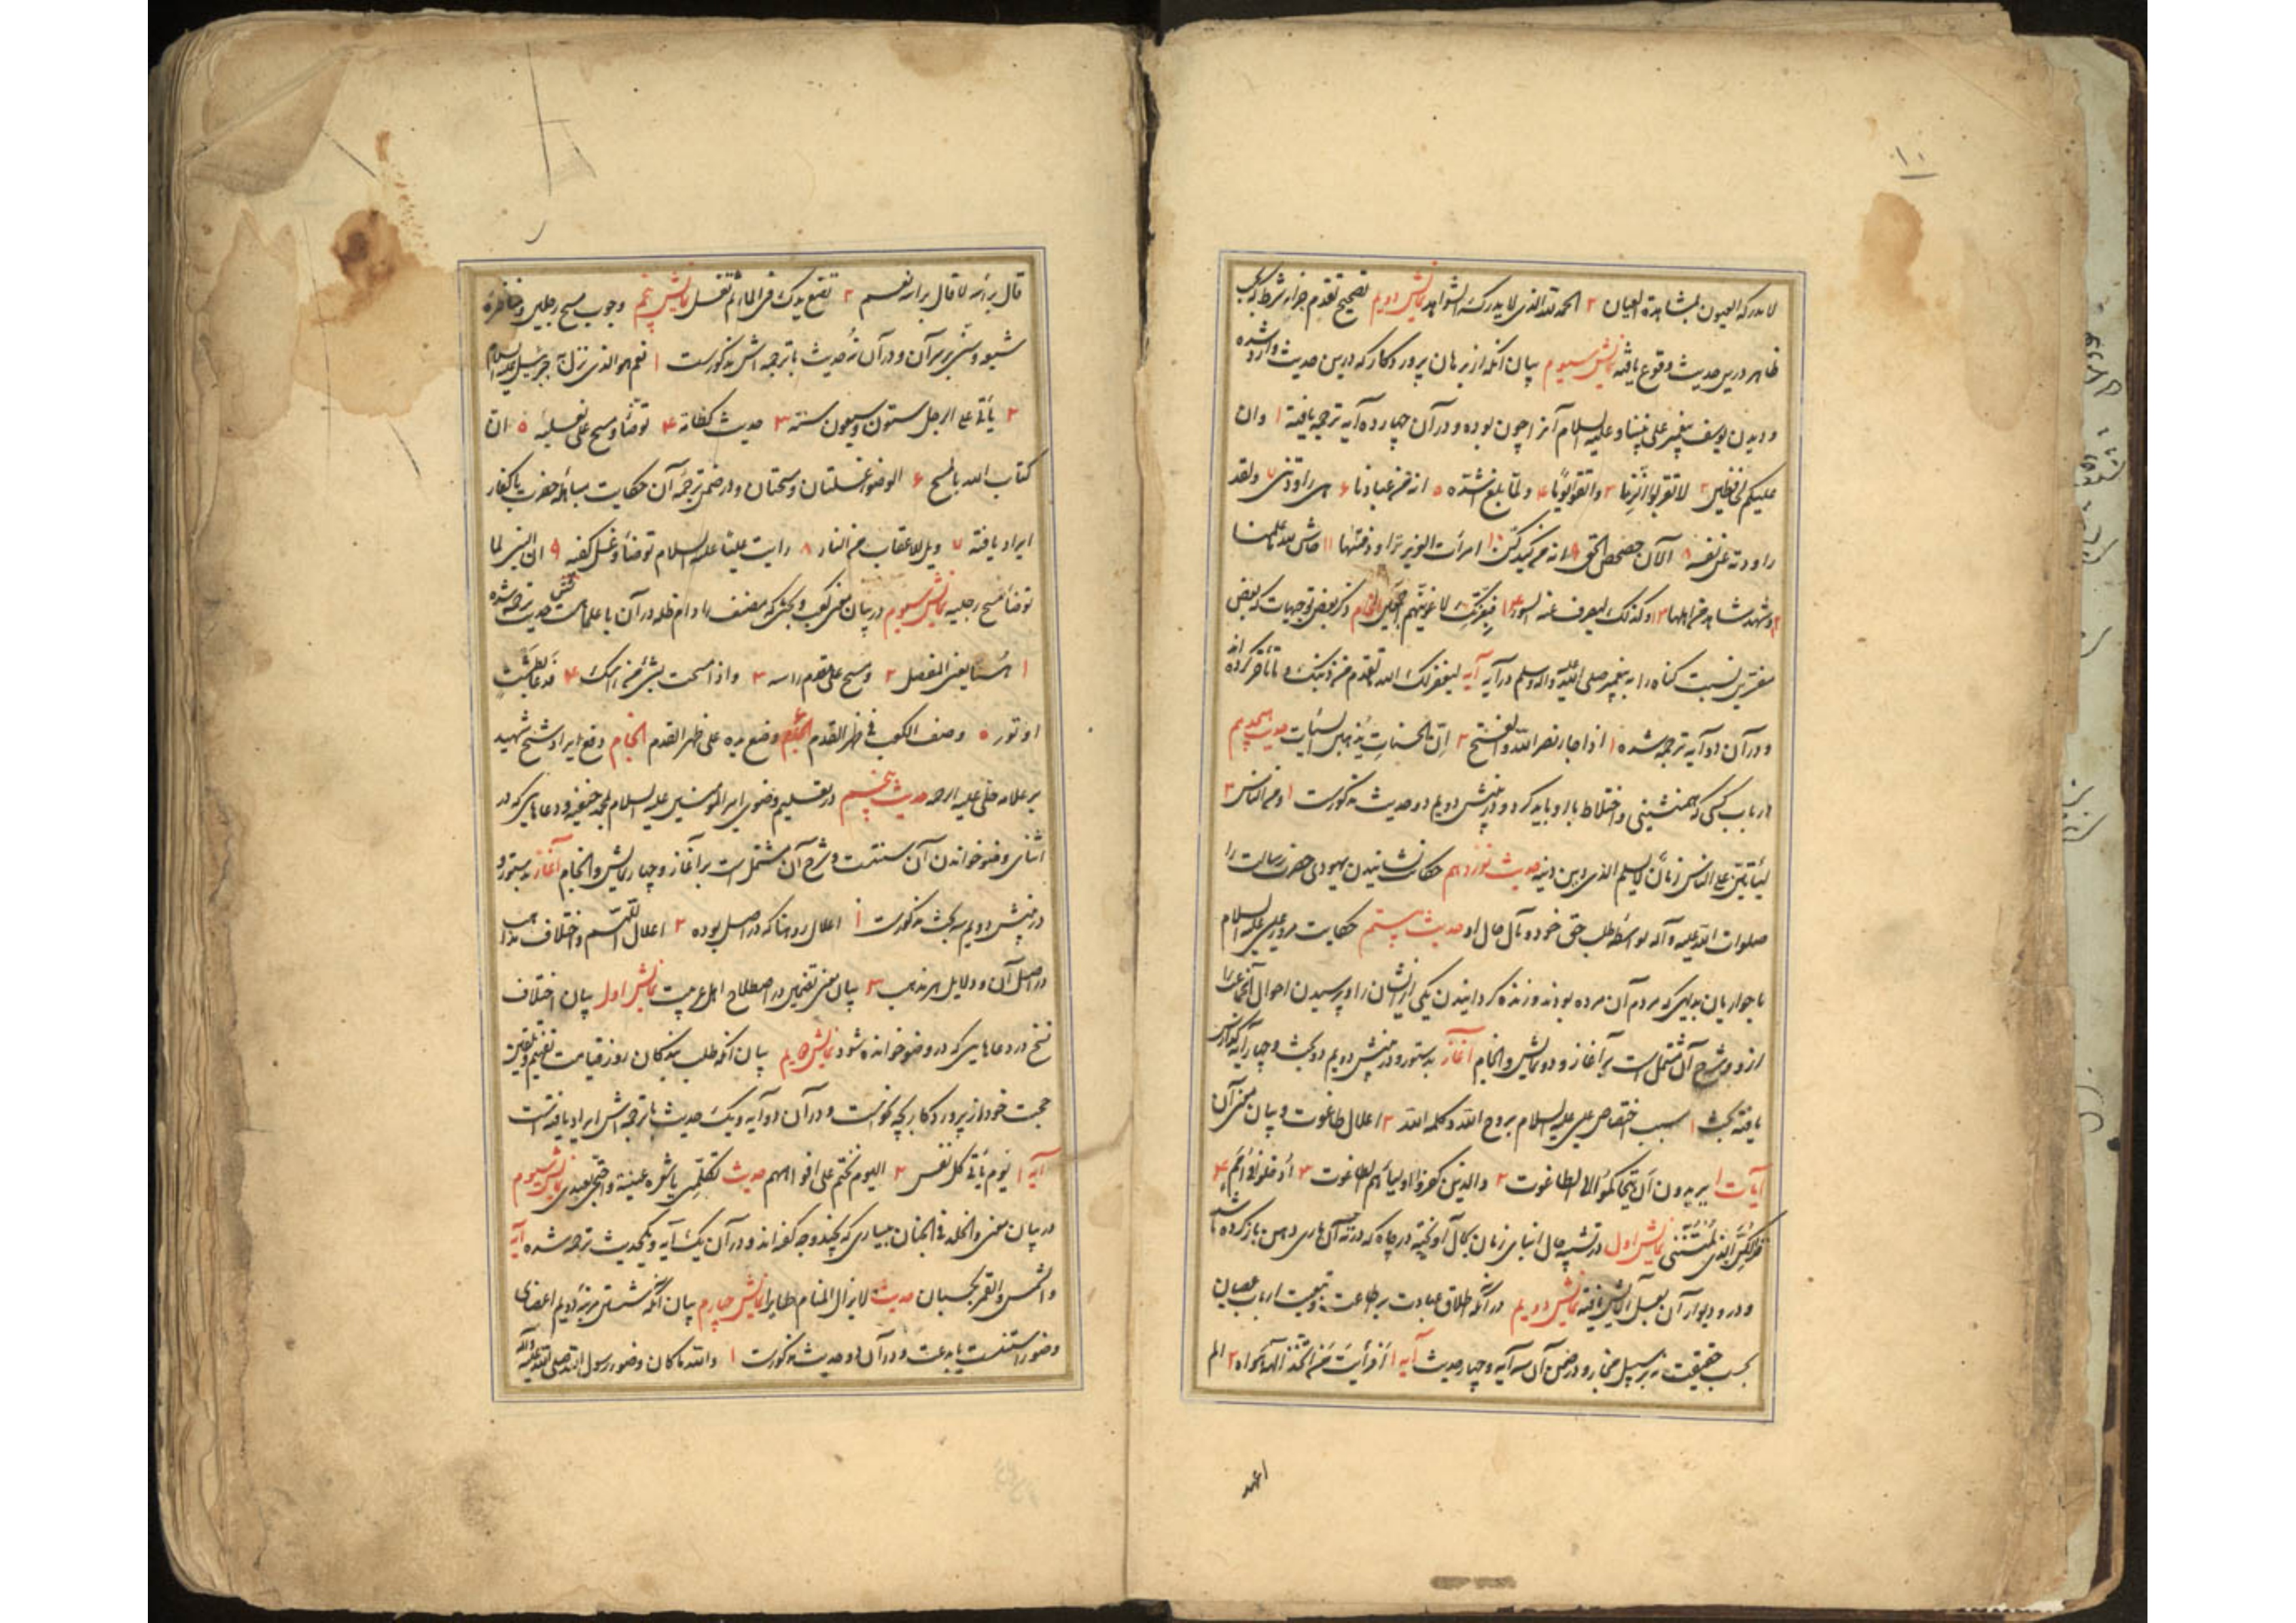 ١٠
لا یدرکه العیون بمشاهدة العیان ٢ الحمد لله الذی لا یدرکه الشواهد نمایش دویم تصحیح تقدم جزاء بر شرط که بحسب
ظاهر درین حدیث وقوع یافته نمایش سیوم بیان آنکه از برهان پروردکار که درین حدیث وارد شده
و دیدن یوسف پیغمبر علی نبینا و علیه السلام آنرا چون بوده و در آن چهارده آیه ترجمه یافته ١ و ان
علیکم لحافظین ٢ لا تقربوا الزنا ٣ واتقوا یوما ٤ ولما بلغ اشده ٥ انه من عبادنا ٦ هی راودتنی ٧ ولقد
راودته عن نفسه ٨ الآن حصحص الحق ٩ انه من کیدکن ١٠ امرأت العزیز تراود فتیها ١١ حاش لله ما علمنا
١٢ وشهد شاهد من اهلها ١٣ وکذلک لیصرف عنه السوء ١٤ فبعزتک لاغوینهم اجمعین انجام ذکر بعضی توجیهات که بعض
مفسرین نسبت کناه را به پیغمبر صلی الله علیه وآله وسلم در آیه آیه لیغفر لک الله ما تقدم من ذنبک وما تأخر کرده اند
و در آن دو آیه ترجمه شده ١ اذا جاء نصر الله والفتح ٢ ان الحسنات یذهبن السیئات حدیث هیجدهم
در باب کسی که همنشینی و اختلاط با او باید کرد و در پیش دویم دو حدیث مذکورست ١ ومن الناس ٢
لیأتین علی الناس زمان لا یسلم لذی دین دینه حدیث نوزدهم حکایت نشانیدن یهودی حضرت رسالت را
صلوات الله علیه وآله بواسطه طلب حق خود و مآل حال او حدیث بیستم حکایت مرور عیسی علیه السلام
با حواریان بدهی که مردم آن مرده بودند و زنده کردانیدن یکی از ایشان را و پرسیدن احوال آنجماعت را
از و و شرح آن مشتمل است بر آغاز و دو نمایش و انجام آغاز بدستور و در پیش دویم دو بحث و چهار آیه کذارش
یافته بحث ١ سبب اختصاص عیسی علیه السلام بروح الله و کلمه الله ٢ اعلال طاغوت و بیان معنی آن
آیات ١ یریدون ان یتحاکموا الی الطاغوت ٢ والذین کفروا اولیاؤهم الطاغوت ٣ ادخلوا فی امم ٤
فذلکن الذی لمتننی نمایش اول در تشبیه حال ابنای زمان بحال آویخته در چاه که در ته آن ماری دهن باز کرده باشد
و در و دیوار آن بعسل آلایش یافته نمایش دویم در آنکه اطلاق عبادت بر طاعت و تبعیت ارباب عصیان
بحسب حقیقت نه بر سبیل مجاز و در ضمن آن سه آیه و چهار حدیث آیه ١ افرأیت من اتخذ الهه هواه ٢ الم
اعهد
قال برأسه لا قال برأسه نعم ٢ تضع یدک فی الماء ثم تغسل نمایش پنجم وجوب مسح رجلین و مناظره
شیعه و سنی بر سر آن و در آن نه حدیث با ترجمه اش مذکورست ١ نعم هو الذی نزل به جبرئیل علیه السلام
٢ یأتی علی الرجل ستون و سبعون سنة ٣ حدیث کظامة ٤ توضأ ومسح علی نعلیه ٥ ان
کتاب الله بالمسح ٦ الوضوء غسلتان ومسحتان و در ضمن ترجمه آن حکایت مباهله حضرت با کفار
ایراد یافته ٧ ویل للاعقاب من النار ٨ رأیت علیا علیه السلام توضأ وغسل کفیه ٩ ان النبی لما
توضأ مسح رجلیه نمایش سیوم در بیان معنی کعب و بحثی که مصنف را دام ظله در آن با علمای است و شش حدیث ترجمه شده
١ هیهنا یعنی المفصل ٢ ومسح علی مقدم راسه ٣ واذا مسحت بشئ من رأسک ٤ فدعا بطشت
او تور ٥ وصف الکعب فی ظهر القدم ٦ وضع یده علی ظهر القدم انجام دفع ایراد شیخ شهید
بر علامه حلی علیه الرحمه حدیث پنجم در تعلیم وضوی امیر المؤمنین علیه السلام لمحمد حنفیه و دعاهایی که در
اثنای وضو خواندن آن سنتست و شرح آن مشتمل است بر آغاز و چهار نمایش و انجام آغاز بدستور و
در پیش دویم سه بحث مذکورست ١ اعلال ها که در اصل بوده ٢ اعلال اللهم و اختلاف مذاهب
در اصل آن و دلایل هر مذهب ٣ بیان معنی تضمین در اصطلاح اهل عربیت نمایش اول بیان اختلاف
نسخ در دعاهایی که در وضو خوانده شود نمایش دویم بیان آنکه طلب بندکان روز قیامت تفهیم و تلقین
حجت خود از پروردکار بچه نحوست و در آن دو آیه و یک حدیث با ترجمه اش ایراد یافته است
آیه ١ یوم یأتی کل نفس ٢ الیوم نختم علی افواههم حدیث نمایش سیوم
در بیان معنی والخلد فی الجنان بیساری که بچند وجه کفته اند و در آن یک آیه و یکحدیث ترجمه شده آیه
والشمس والقمر بحسبان حدیث لا یزال المنام طایرا نمایش چهارم بیان آنکه شستن مرتبه دویم اعضای
وضو را سنتست یا بدعت و در آن دو حدیث مذکورست ١ والله ما کان وضوء رسول الله صلی الله علیه وآله